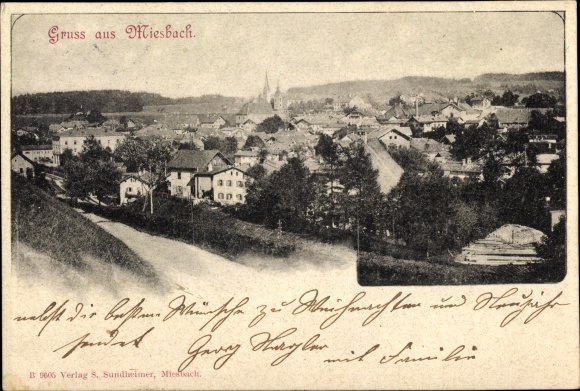 Gruss aus Miesbach.
nebst die besten Wünsche zu Weihnachten und Neujahr
sendet Georg Nagler mit Familie
B 9605 Verlag S. Sundheimer, Miesbach.